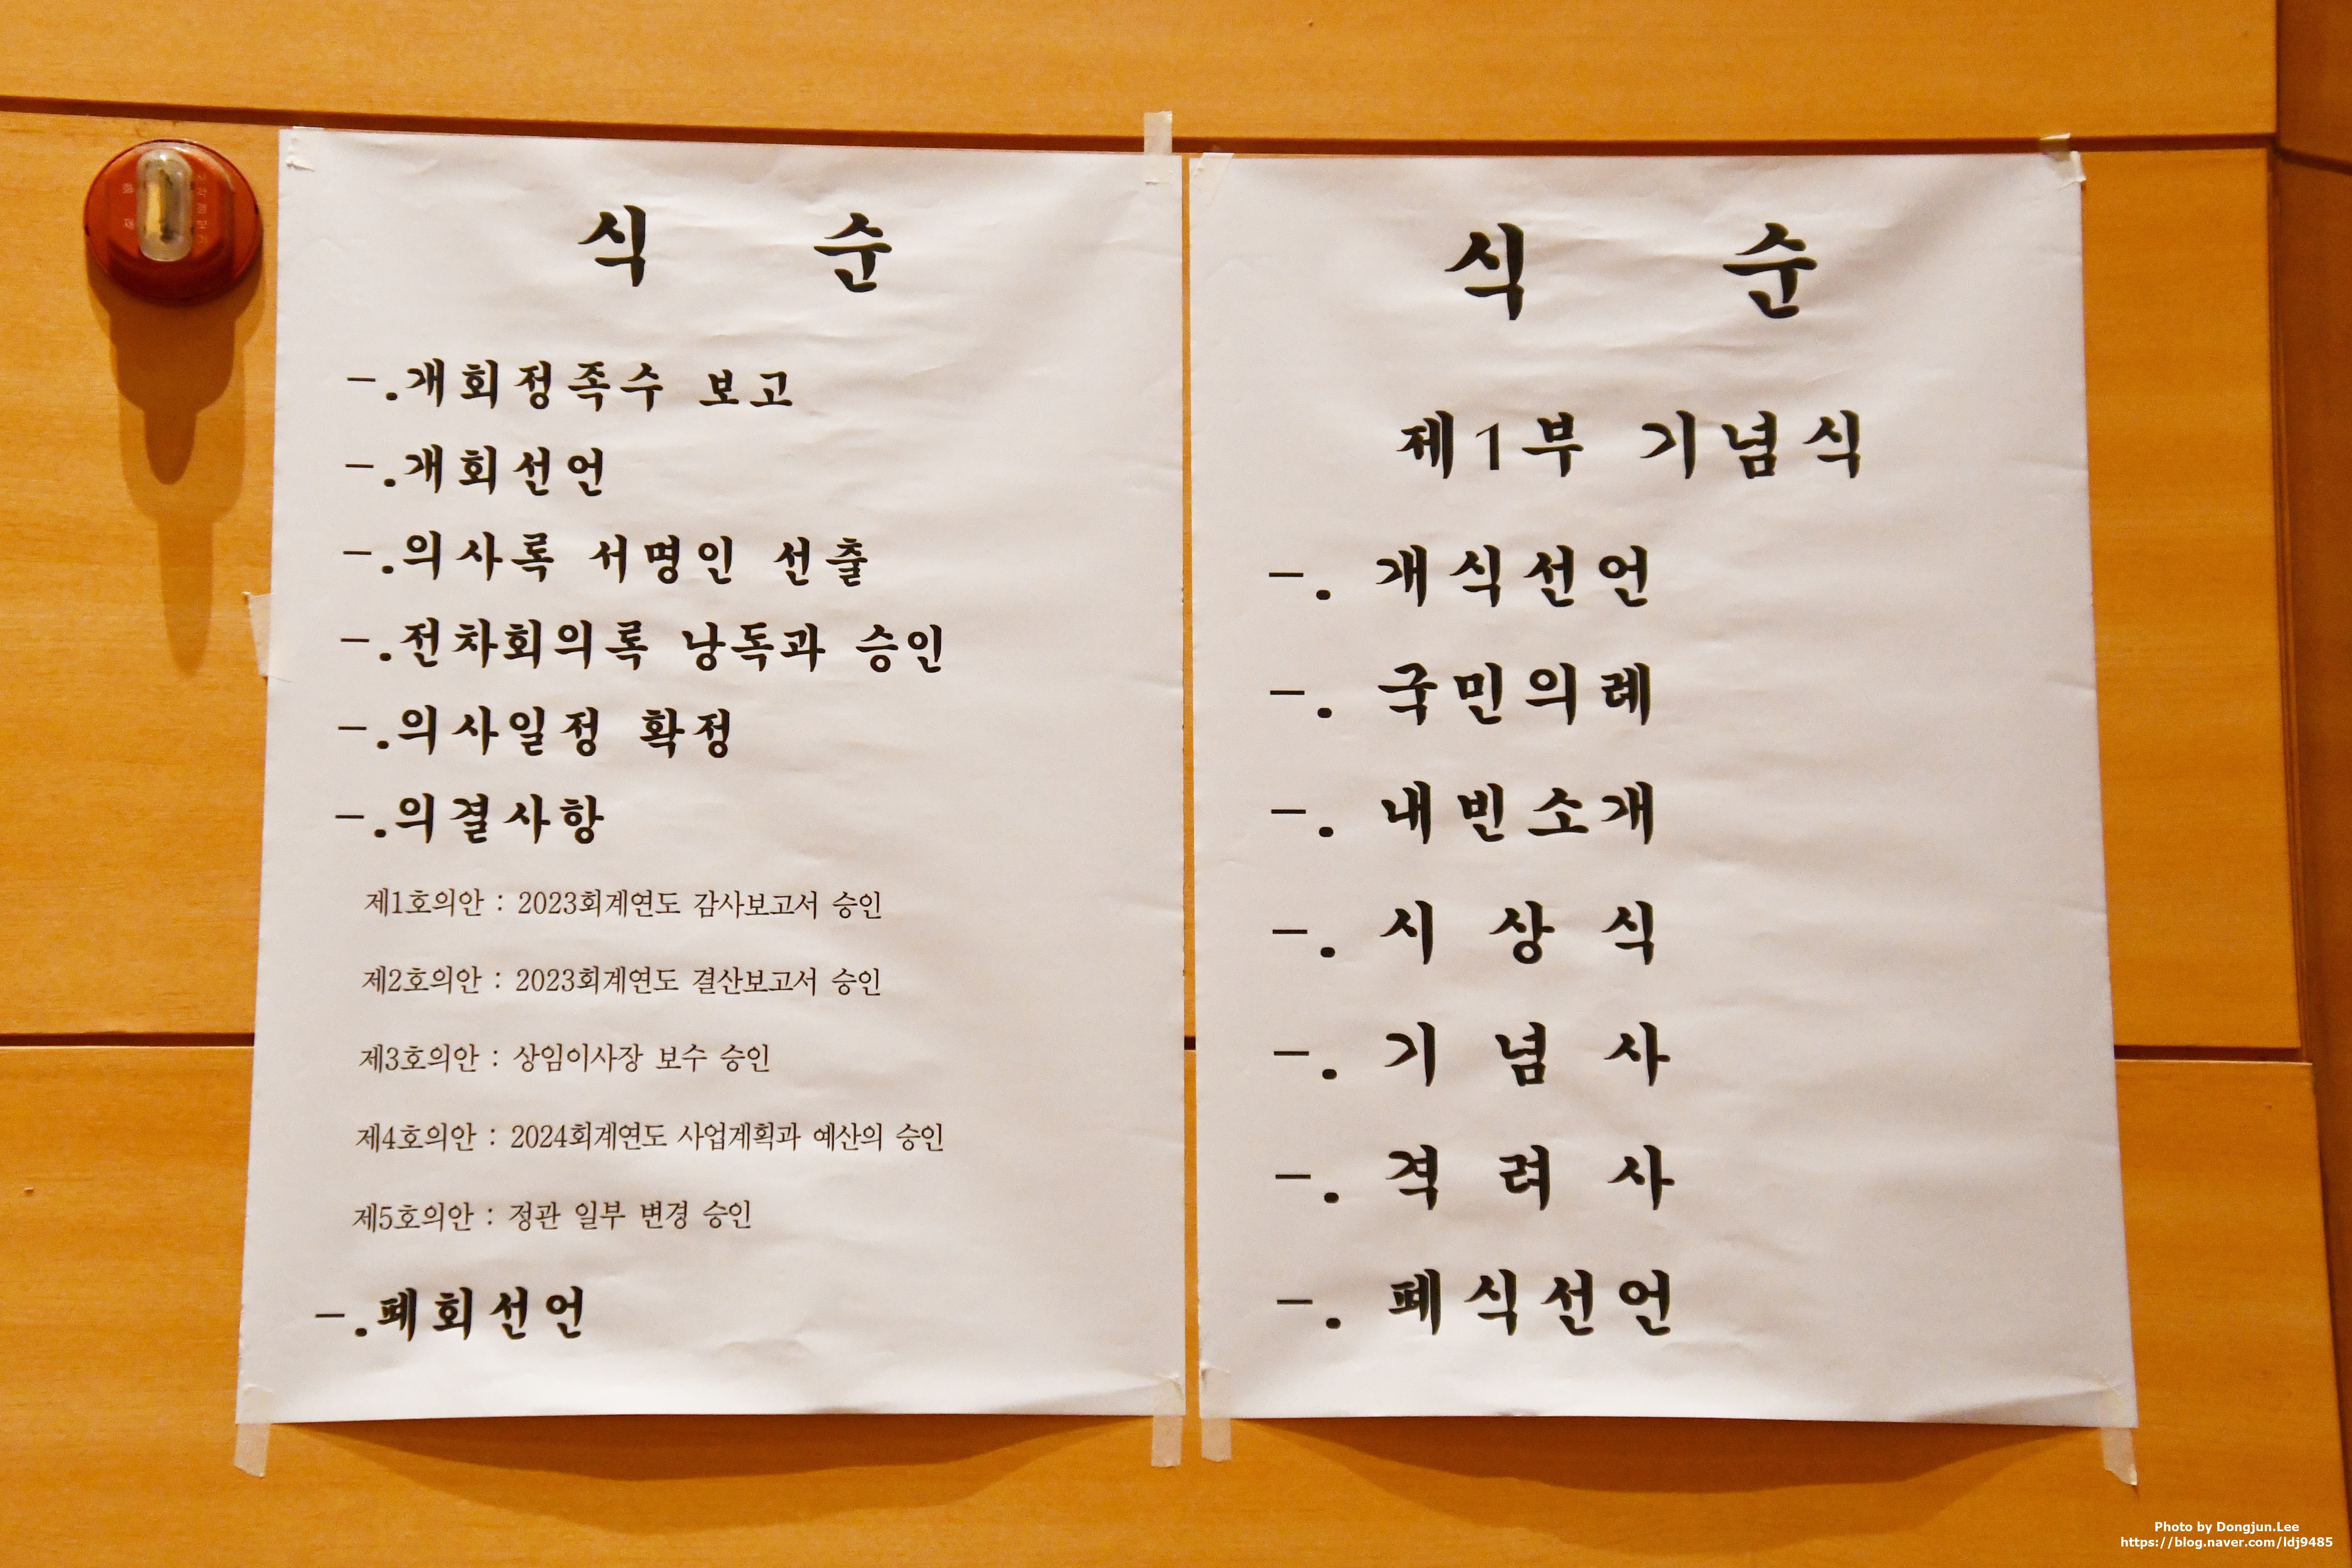 식 순
-.개회정족수 보고
-.개회선언
-.의사록 서명인 선출
-.전차회의록 낭독과 승인
-.의사일정 확정
-.의결사항
제1호의안 : 2023회계연도 감사보고서 승인
제2호의안 : 2023회계연도 결산보고서 승인
제3호의안 : 상임이사장 보수 승인
제4호의안 : 2024회계연도 사업계획과 예산의 승인
제5호의안 : 정관 일부 변경 승인
-.폐회선언
식 순
제1부 기념식
-. 개식선언
-. 국민의례
-. 내빈소개
-. 시 상 식
-. 기 념 사
-. 격 려 사
-. 폐식선언
화재
시각경보기
Photo by Dongjun.Lee
https://blog.naver.com/ldj9485